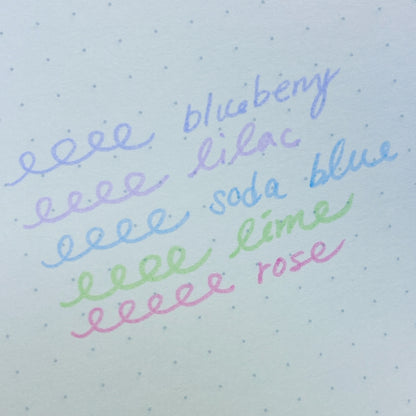 blueberry
lilac
soda blue
lime
rose